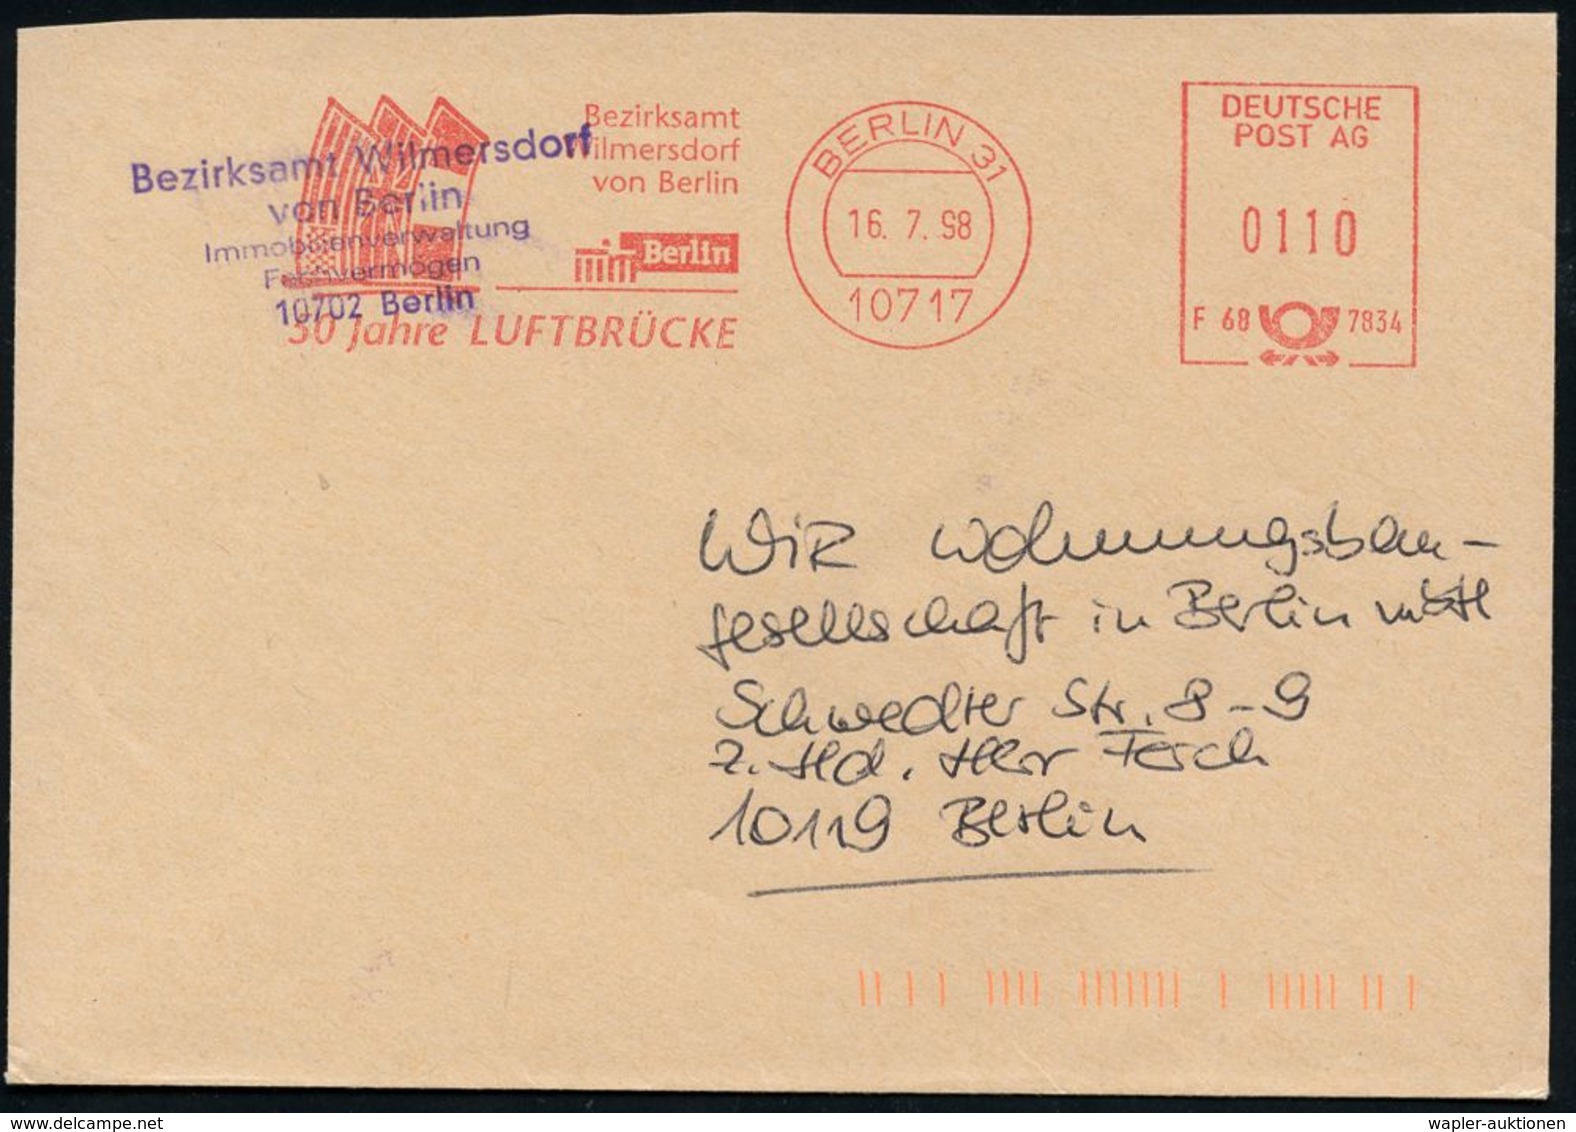 Bezirksamt Wilmersdorf
von Berlin
Immobilienverwaltung
10702 Berlin
Bezirksamt
Wilmersdorf
von Berlin
Berlin
50 Jahre LUFTBRÜCKE
BERLIN 31
16. 7. 98
10717
DEUTSCHE
POST AG
0110
F 68 7834
WiR Wohnungsbau-
gesellschaft in Berlin mbH
Schwedter Str. 8-9
z. Hd. Herr
10119 Berlin
wapler-auktionen